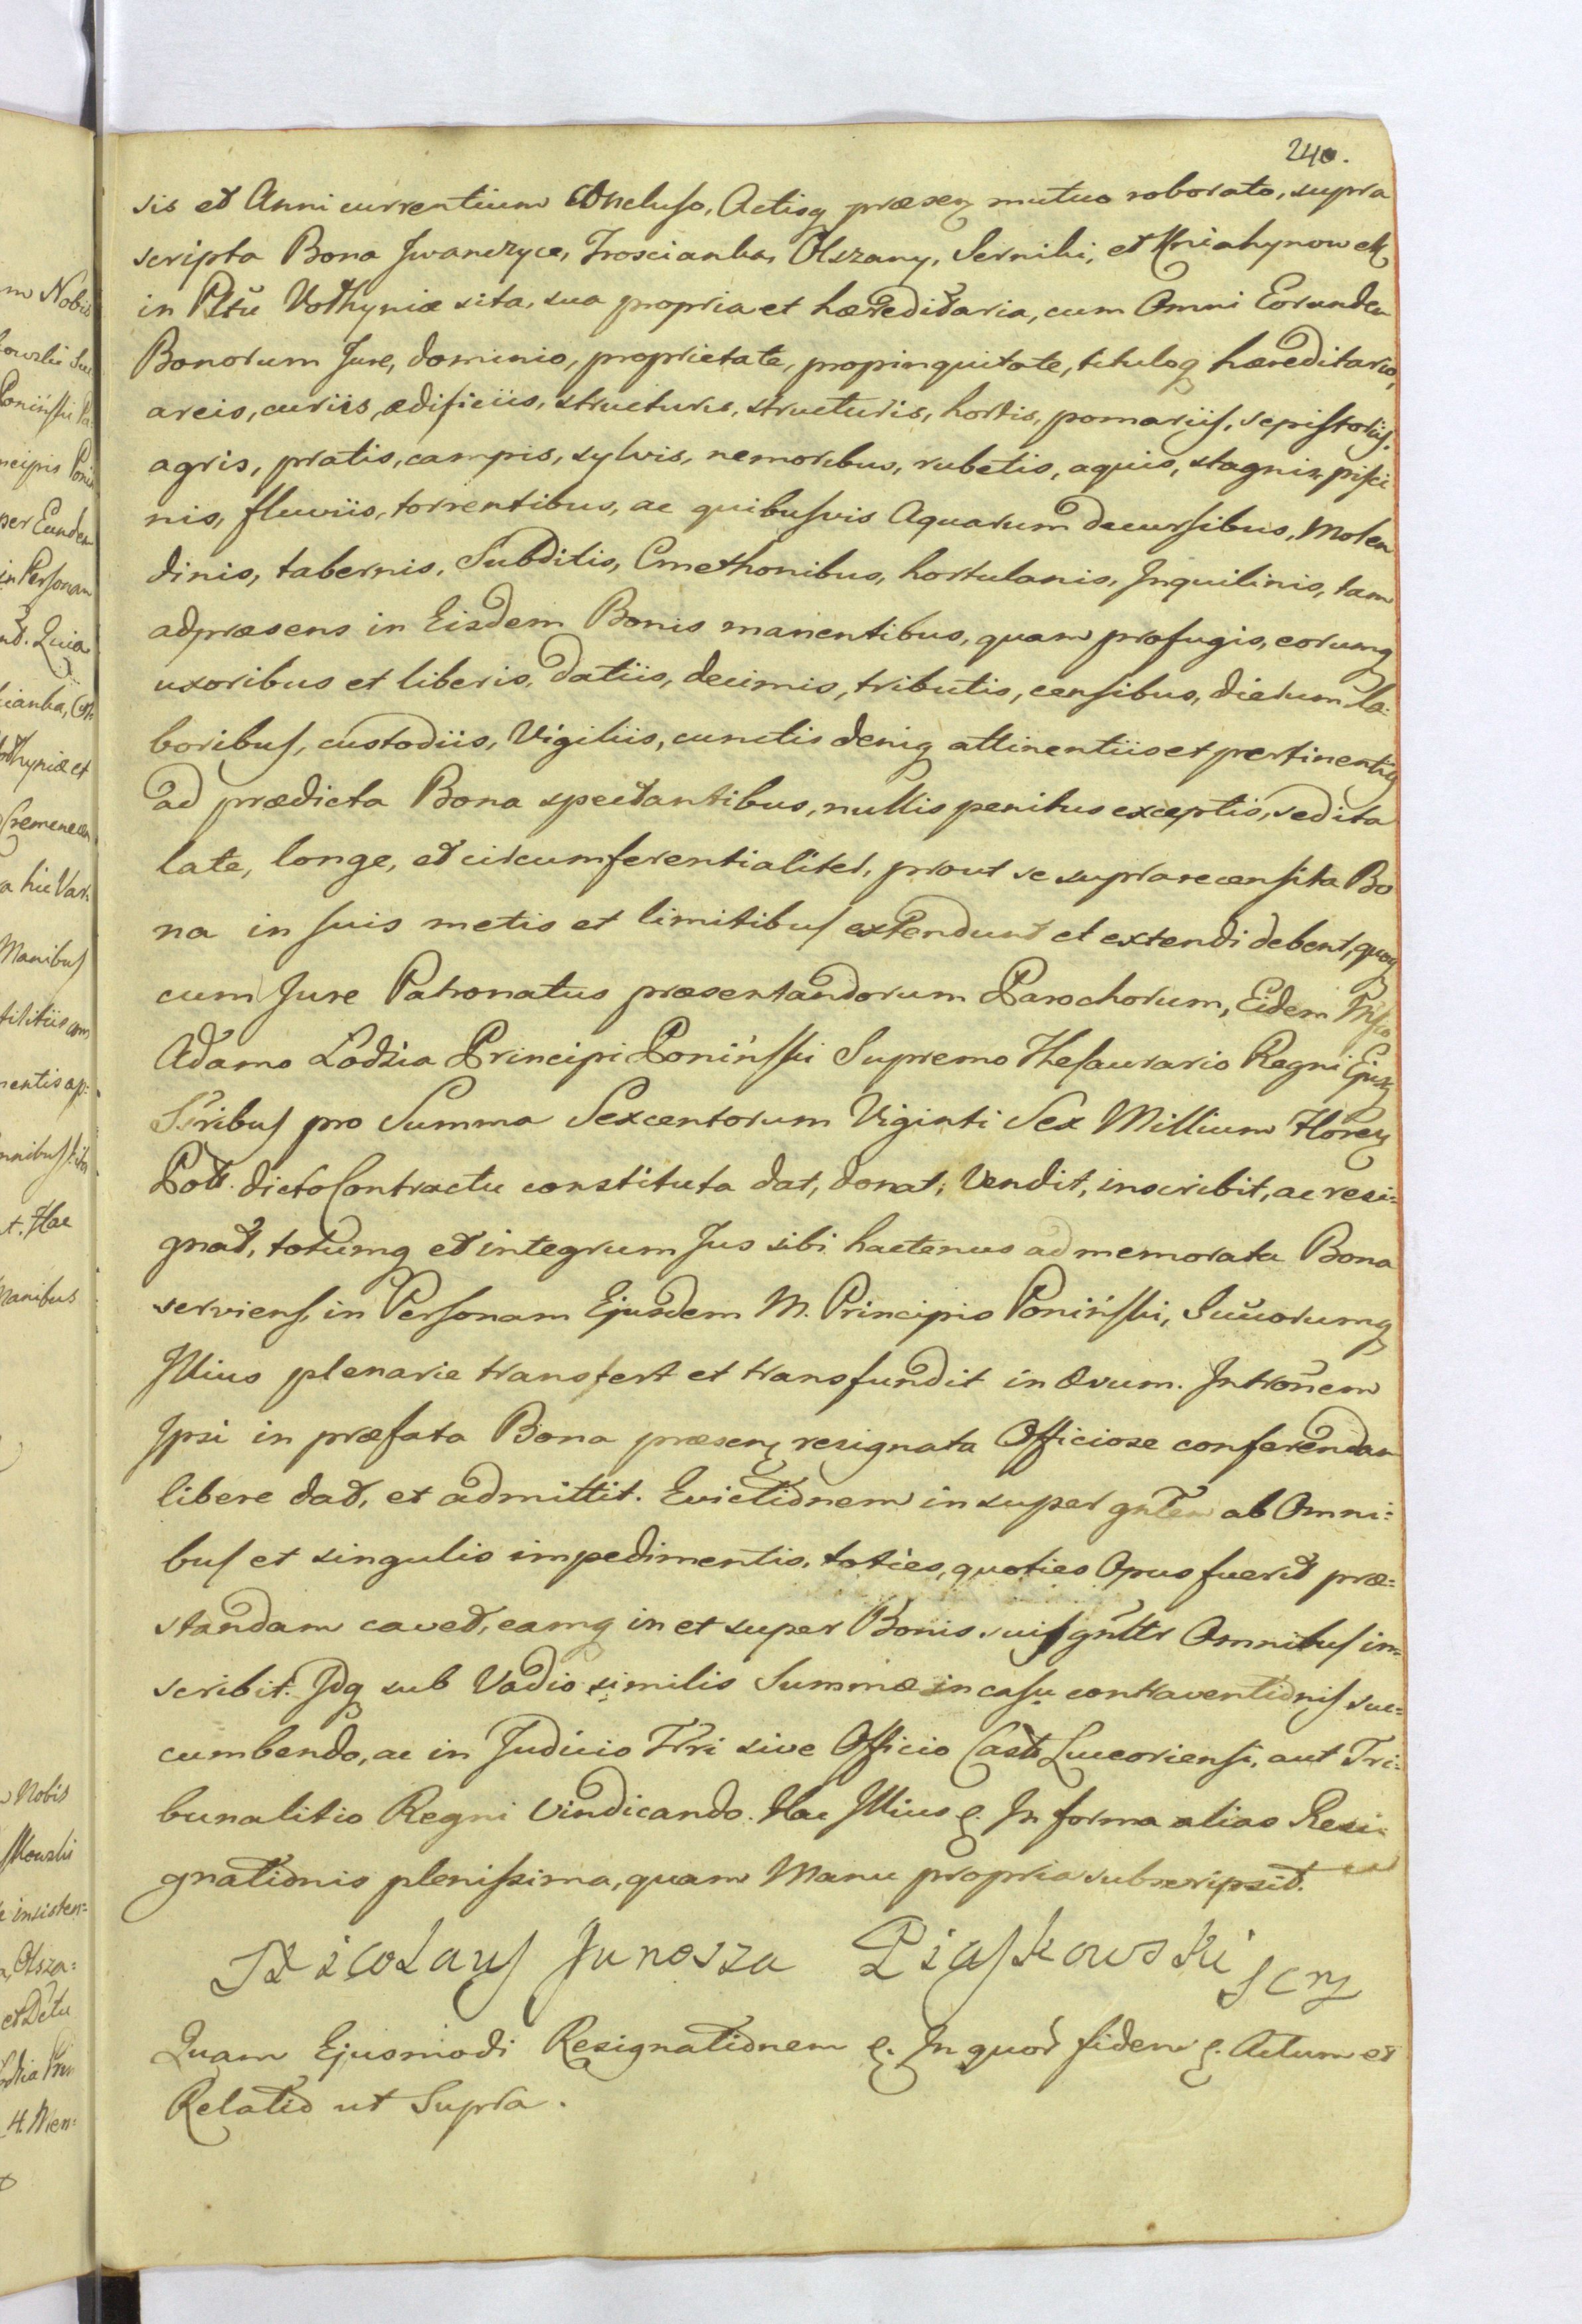 240.
sis et Anni currentium Concluso, Actisq præsen mutuo roborato, supra
scripta Bona Jwanczyce, Troscianka, Olszany, Serniki, et Kniahynowek
in Pltu Volhyniæ sita, sua propria et hæreditaria, cum Omni Eorundem
Bonorum Jure, dominio, proprietate, propinquitate, tituloq hæreditario,
areis, curiis, ædificiis, structuris, structuris, hortis, pomariis,
agris, pratis, campis, sylvis, nemoribus, rubetis, aquis, stagnis, pisci
nis, fluviis, torrentibus, ac quibusvis Aquarum decursibus, Molen
dinis, tabernis, Subditis, Cmethonibus, hortulanis, Inquilinis, tam
adpræsens in Eisdem Bonis manentibus, quam profugis, eorumq
uxoribus et liberis, datiis, decimis, tributis, censibus, dierum la-
boribus, custodiis, Vigiliis, cunctis deniq attinentiis et pertinentiis
ad prædicta Bona spectantibus, nullis penitus exceptis, sed ita
late, longe, et circumferentialiter, prout se suprarecensita Bo
na in suis metis et limitibus extendunt et extendi debent, quoq
cum Jure Patronatus præsentandorum Parochorum, Eidem
Adamo Lodzia Principi Poniński Supremo Thesaurario Regni Ejusq
Sribus pro Summa Sexcentorum Viginti Sex Millium Floren
Poll. dicto Contractu constituta dat, donat, Vendit, inscribit, ac resi-
gnat, totumq et integrum Jus sibi hactenus ad memorata Bona
serviens, in Personam Ejusdem M. Principis Poniński, Suuorumq
Illius plenarie transfert et transfundit in ævum. Intronem
Ipsi in præfata Bona præsen resignata Officiose conferendam
libere dat, et admittit. Evictionem insuper gnlem ab Omni=
bus et singulis impedimentis, toties, quoties Opus fuerit præ=
standam cavet, eamq in et super Bonis suis gnltr Omnibus in=
scribit. Idq sub Vadio similis Summæ in casu contraventionis suc=
cumbendo, ac in Judicio Trri sive Officio Castr Luceoriensi, aut Tri=
bunalitio Regni Vindicando. Hac Illius &. In forma alias Resi-
gnationis plenissima, quam Manu propria subscripsit.
Nicolaus Junosza Piaskowski SCK
Quam Ejusmodi Resignationem &. In quor fidem &. Actum et
Relatio ut Supra.